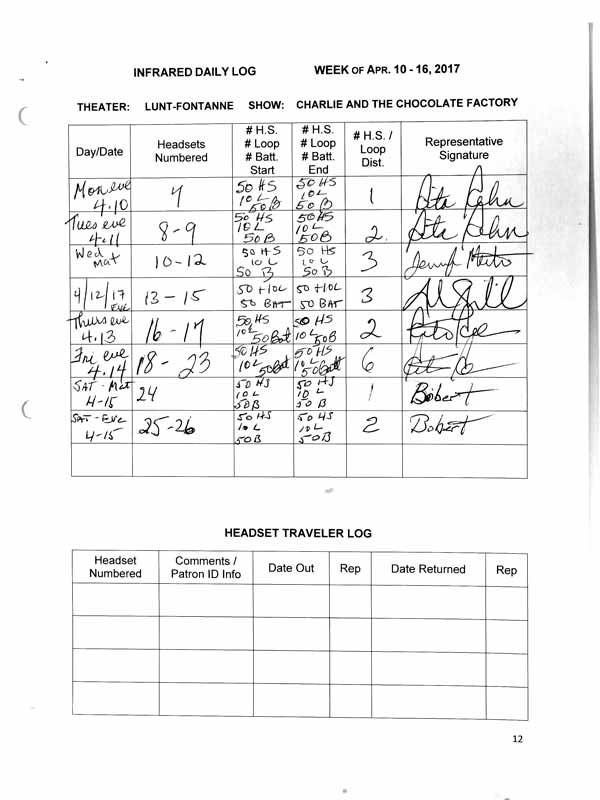 INFRARED DAILY LOG WEEK OF APR. 10 - 16, 2017
THEATER: LUNT-FONTANNE SHOW: CHARLIE AND THE CHOCOLATE FACTORY
Day/Date Headsets Numbered # H.S. # Loop # Batt. Start # H.S. # Loop # Batt. End # H.S. / Loop Dist. Representative Signature
Mon eve 4.10 7 50 HS 10 L 50 B 50 HS 10 L 50 B 1 Rita
Tues eve 4.11 8-9 50 HS 10 L 50 B 50 HS 10 L 50 B 2 Rita
Wed Mat 10-12 50 HS 10 L 50 B 50 HS 10 L 50 B 3
4/12/17 EVE 13-15 50 + 10L 50 BAT 50 + 10L 50 BAT 3
Thurs eve 4.13 16-17 50 HS 10 L 50 Bat 50 HS 10 L 50 Bat 2
Fri eve 4.14 18-23 50 HS 10 L 50 Bat 50 HS 10 L 50 Batt 6
SAT - Mat 4-15 24 50 HS 10 L 50 B 50 HS 10 L 50 B 1 Bobert
SAT - EVE 4-15 25-26 50 HS 10 L 50 B 50 HS 10 L 50 B 2 Bobert
HEADSET TRAVELER LOG
Headset Numbered Comments / Patron ID Info Date Out Rep Date Returned Rep
12